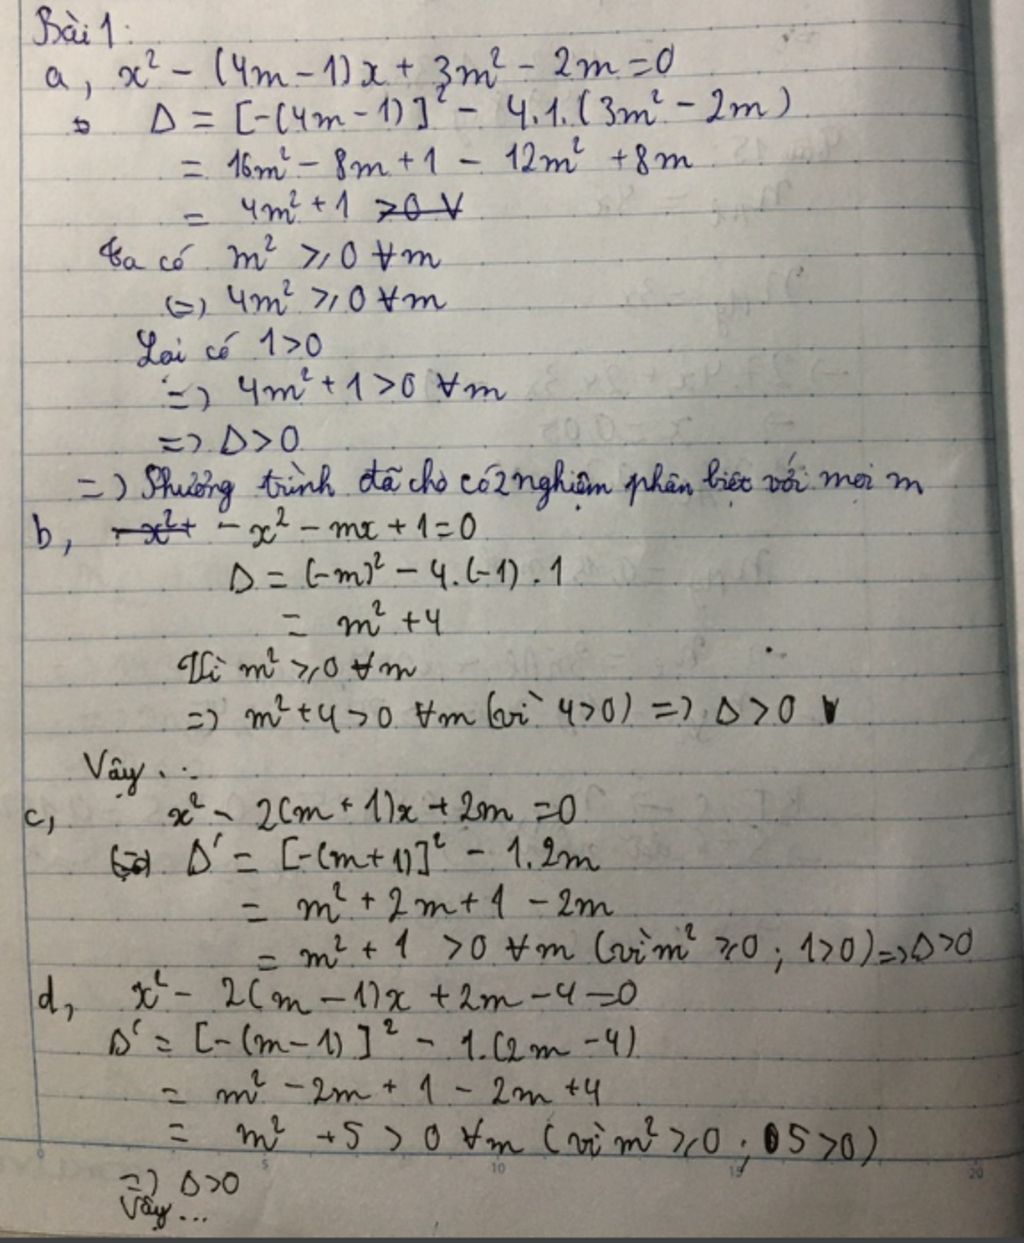 Bài 1:
a, x² - (4m - 1)x + 3m² - 2m = 0
Δ = [-(4m - 1)]² - 4.1.(3m² - 2m)
= 16m² - 8m + 1 - 12m² + 8m
= 4m² + 1 >0 ∀
Ta có m² ≥ 0 ∀m
(=) 4m² ≥ 0 ∀m
Lại có 1>0
=) 4m² + 1 > 0 ∀m
=) Δ > 0
=) Phương trình đã cho có 2 nghiệm phân biệt với mọi m
b, -x²+ -x² - mx + 1 = 0
Δ = (-m)² - 4.(-1).1
= m² + 4
Vì m² ≥ 0 ∀m
=) m² + 4 > 0 ∀m (vì 4>0) =) Δ > 0
Vậy...
c, x² - 2(m + 1)x + 2m = 0
Δ' = [-(m+1)]² - 1.2m
= m² + 2m + 1 - 2m
= m² + 1 > 0 ∀m (vì m² ≥ 0 ; 1>0) =) Δ>0
d, x² - 2(m - 1)x + 2m - 4 = 0
Δ' = [-(m - 1)]² - 1.(2m - 4)
= m² - 2m + 1 - 2m + 4
= m² + 5 > 0 ∀m (vì m² ≥ 0 ; 5 > 0)
=) Δ>0
Vậy...
5 10 15 20